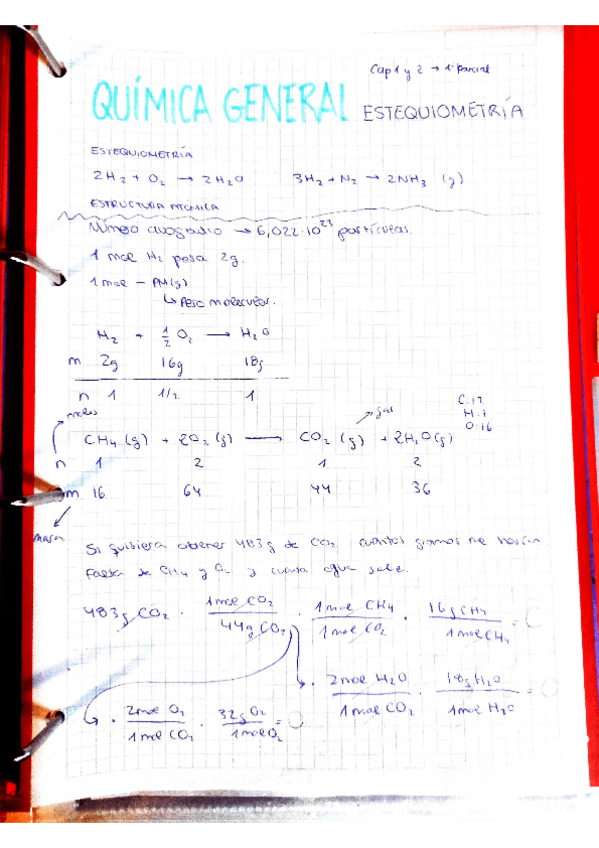 Cap 1 y 2 → 1º Parcial
QUÍMICA GENERAL ESTEQUIOMETRÍA
ESTEQUIOMETRÍA
2H₂ + O₂ → 2H₂O 3H₂ + N₂ → 2NH₃ (g)
ESTRUCTURA ATÓMICA
Número avogadro → 6,022·10²³ partículas.
1 mol H₂ pesa 2g.
1 mol – PM(g)
↳ Peso molecular.
H₂ + 1/2 O₂ → H₂O
m 2g 16g 18g
n 1 1/2 1
moles
gas
C:12
H:1
O:16
CH₄(g) + 2O₂(g) → CO₂(g) + 2H₂O(g)
n 1 2 1 2
m 16 64 44 36
masa
Si quisiera obtener 483g de CO₂ cuántos gramos me harían
falta de CH₄ y O₂ y cuánta agua sale.
483g CO₂ · 1mol CO₂ / 44g CO₂ · 1mol CH₄ / 1mol CO₂ · 16g CH₄ / 1mol CH₄ =
· 2mol H₂O / 1mol CO₂ · 18g H₂O / 1mol H₂O =
· 2mol O₂ / 1mol CO₂ · 32g O₂ / 1mol O₂ =